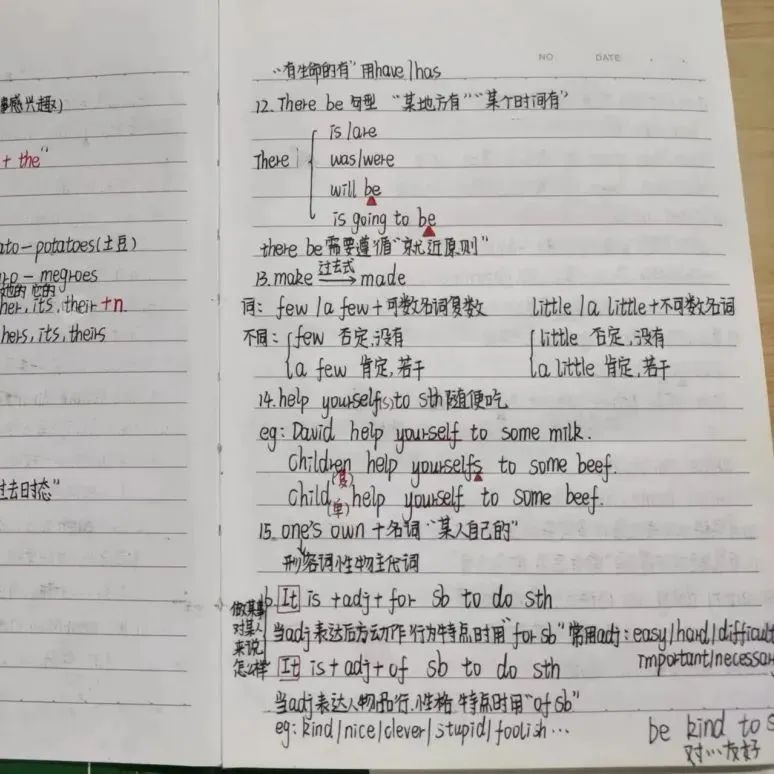 事感兴趣)
+ the"
ato-potatoes(土豆)
ro-megroes
她的 它的
her, its, their +n.
hers, its, theirs
过去时态"
NO DATE
"有生命的有"用have/has
12. There be 句型 "某地方有""某个时间有"
There
is/are
was/were
will be
is going to be
there be需要遵循"就近原则"
13. make 过去式 made
词: few/a few+可数名词复数 little/a little+不可数名词
不同: few 否定,没有 little 否定,没有
a few 肯定,若干 a little 肯定,若干
14. help yourself(s) to sth 随便吃
eg: David help yourself to some milk.
children help yourselfs to some beef.
(复)
child help yourself to some beef.
(单)
15. one's own +名词 "某人自己的"
形容词性物主代词
做某事
对某人
来说
怎么样
It is +adj+ for sb to do sth
当adj表达后方动作行为特点时用"for sb" 常用adj: easy/hard/difficult
important/necessar
It is+adj+of sb to do sth
当adj表达人物品行.性格.特点时用"of sb"
eg: kind/nice/clever/stupid/foolish…
be kind to s
对…友好